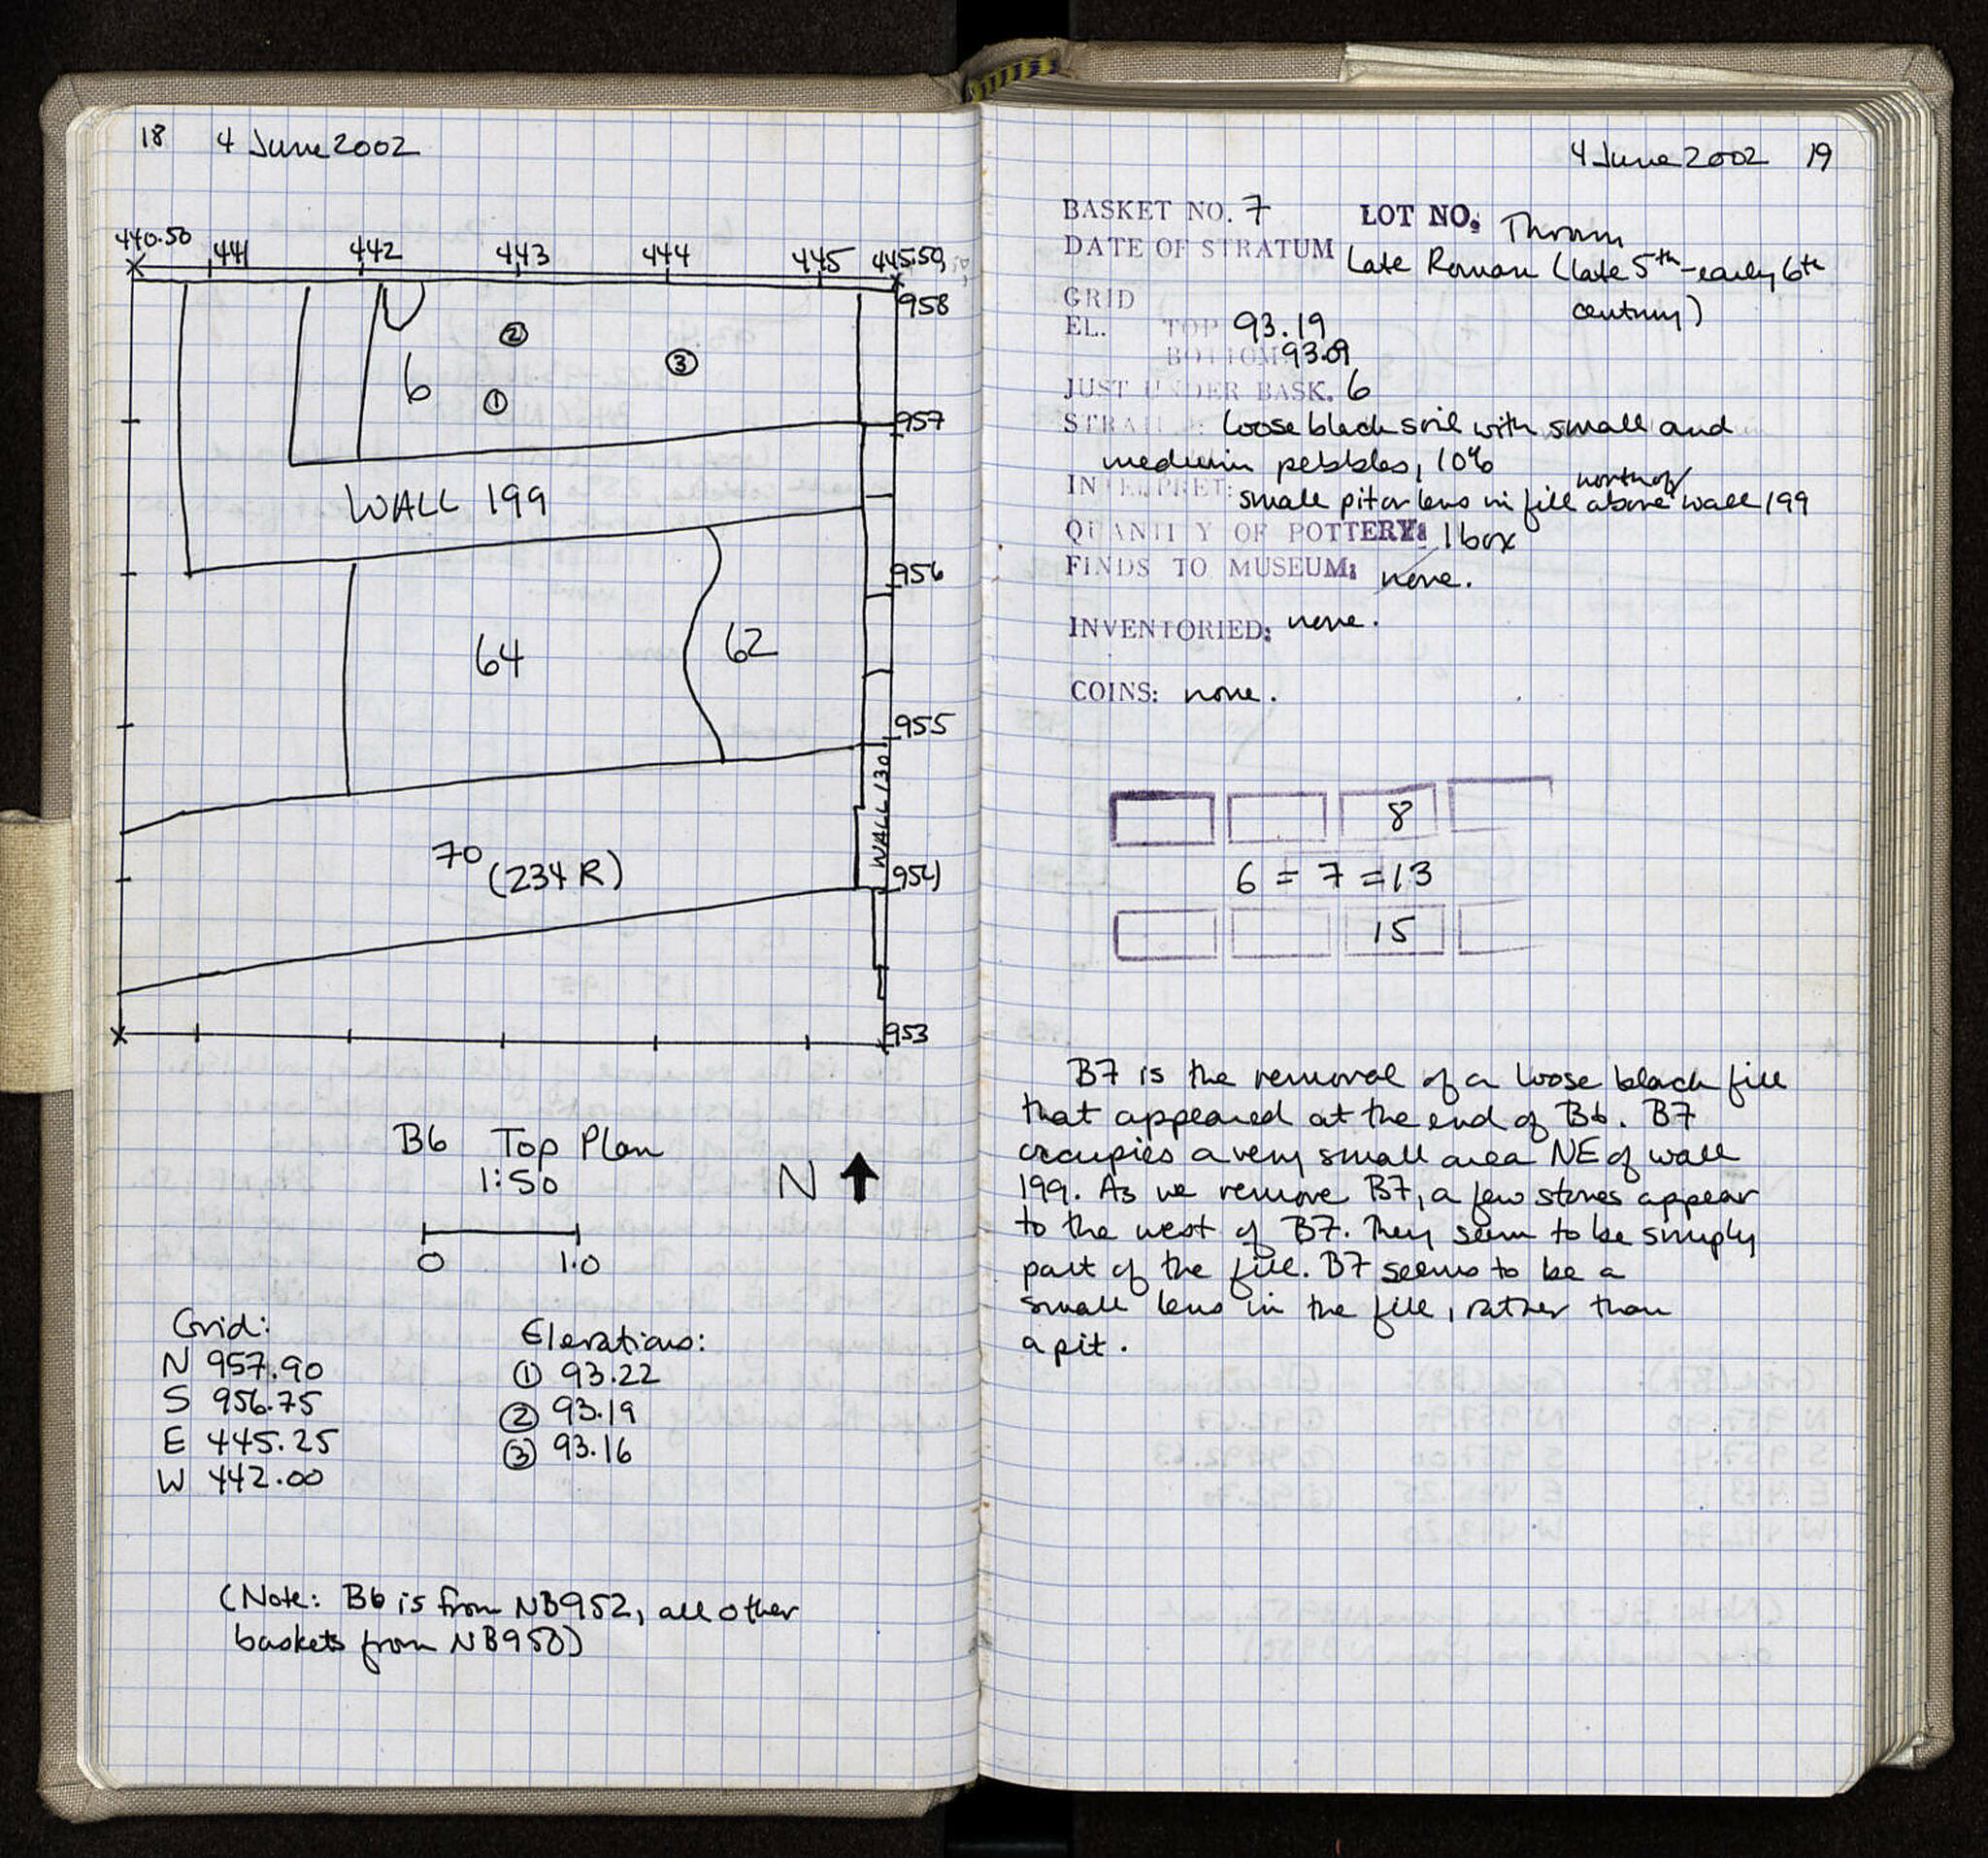 18 4 June 2002
440.50 441 442 443 444 445 445.50
958
②
③
6
①
957
WALL 199
956
64
62
955
WALL 130
70 (234 R)
954
953
B6 Top Plan
1:50
N
0 1.0
Grid:
N 957.90
S 956.75
E 445.25
W 442.00
Elevations:
① 93.22
② 93.19
③ 93.16
(Note: B6 is from NB952, all other
baskets from NB950)
4 June 2002 19
BASKET NO. 7 LOT NO: Thrown
DATE OF STRATUM Late Roman (late 5th-early 6th
century)
GRID
EL. TOP 93.19
BOTTOM 93.09
JUST UNDER BASK. 6
STRATUM: loose black soil with small and
medium pebbles, 10%
INTERPRET: small pit or lens in fill above north of wall 199
QUANTITY OF POTTERY: 1 box
FINDS TO MUSEUM: none.
INVENTORIED: none.
COINS: none.
8
6 = 7 = 13
15
B7 is the removal of a loose black fill
that appeared at the end of B6. B7
occupies a very small area NE of wall
199. As we remove B7, a few stones appear
to the west of B7. They seem to be simply
part of the fill. B7 seems to be a
small lens in the fill, rather than
a pit.